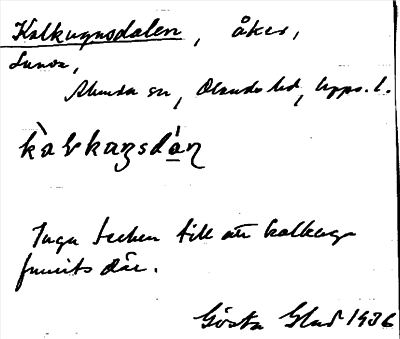 Kalkugnsdalen, åker,
Sunna,
Almunda sn, Olands hd, Upps. l.
kàlkaŋsdán
Inga tecken till att kalkugn
funnits där.
Gösta Glad 1936